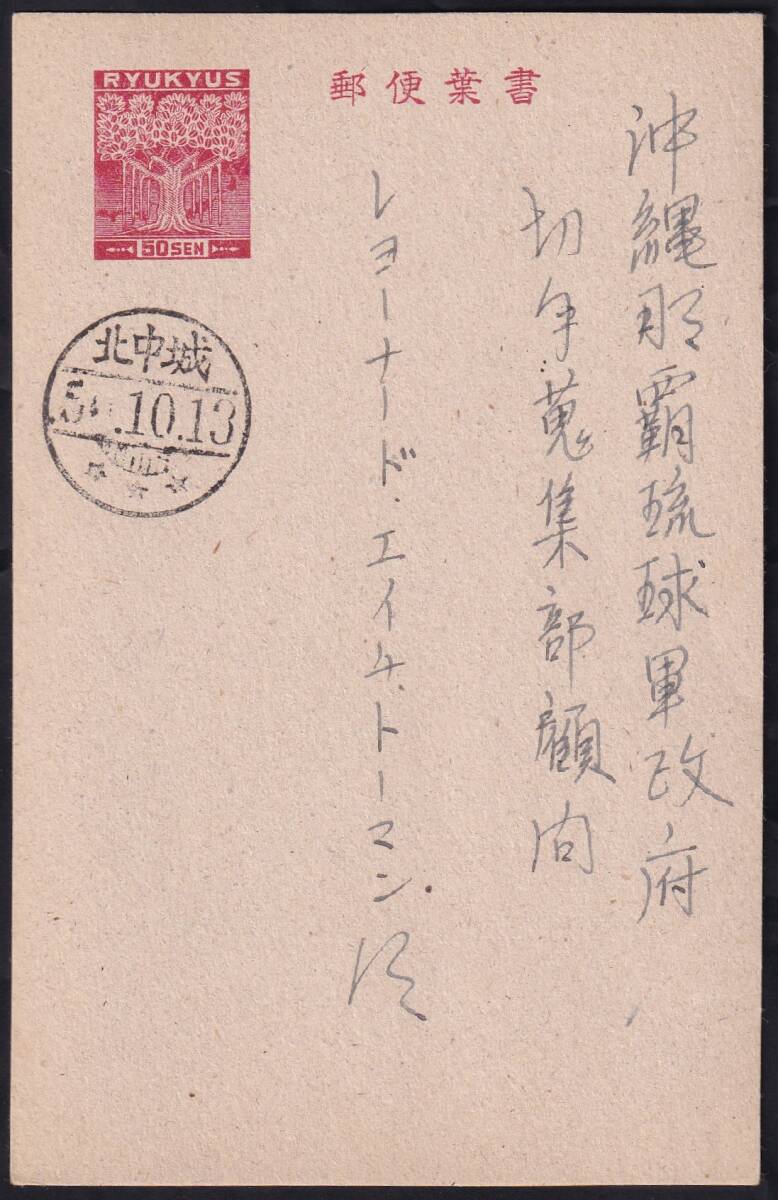 RYUKYUS
50 SEN
郵便葉書
北中城
10.13
沖縄那覇琉球軍政府
切手蒐集部顧問
レヨーナード.エイチ.トーマン.